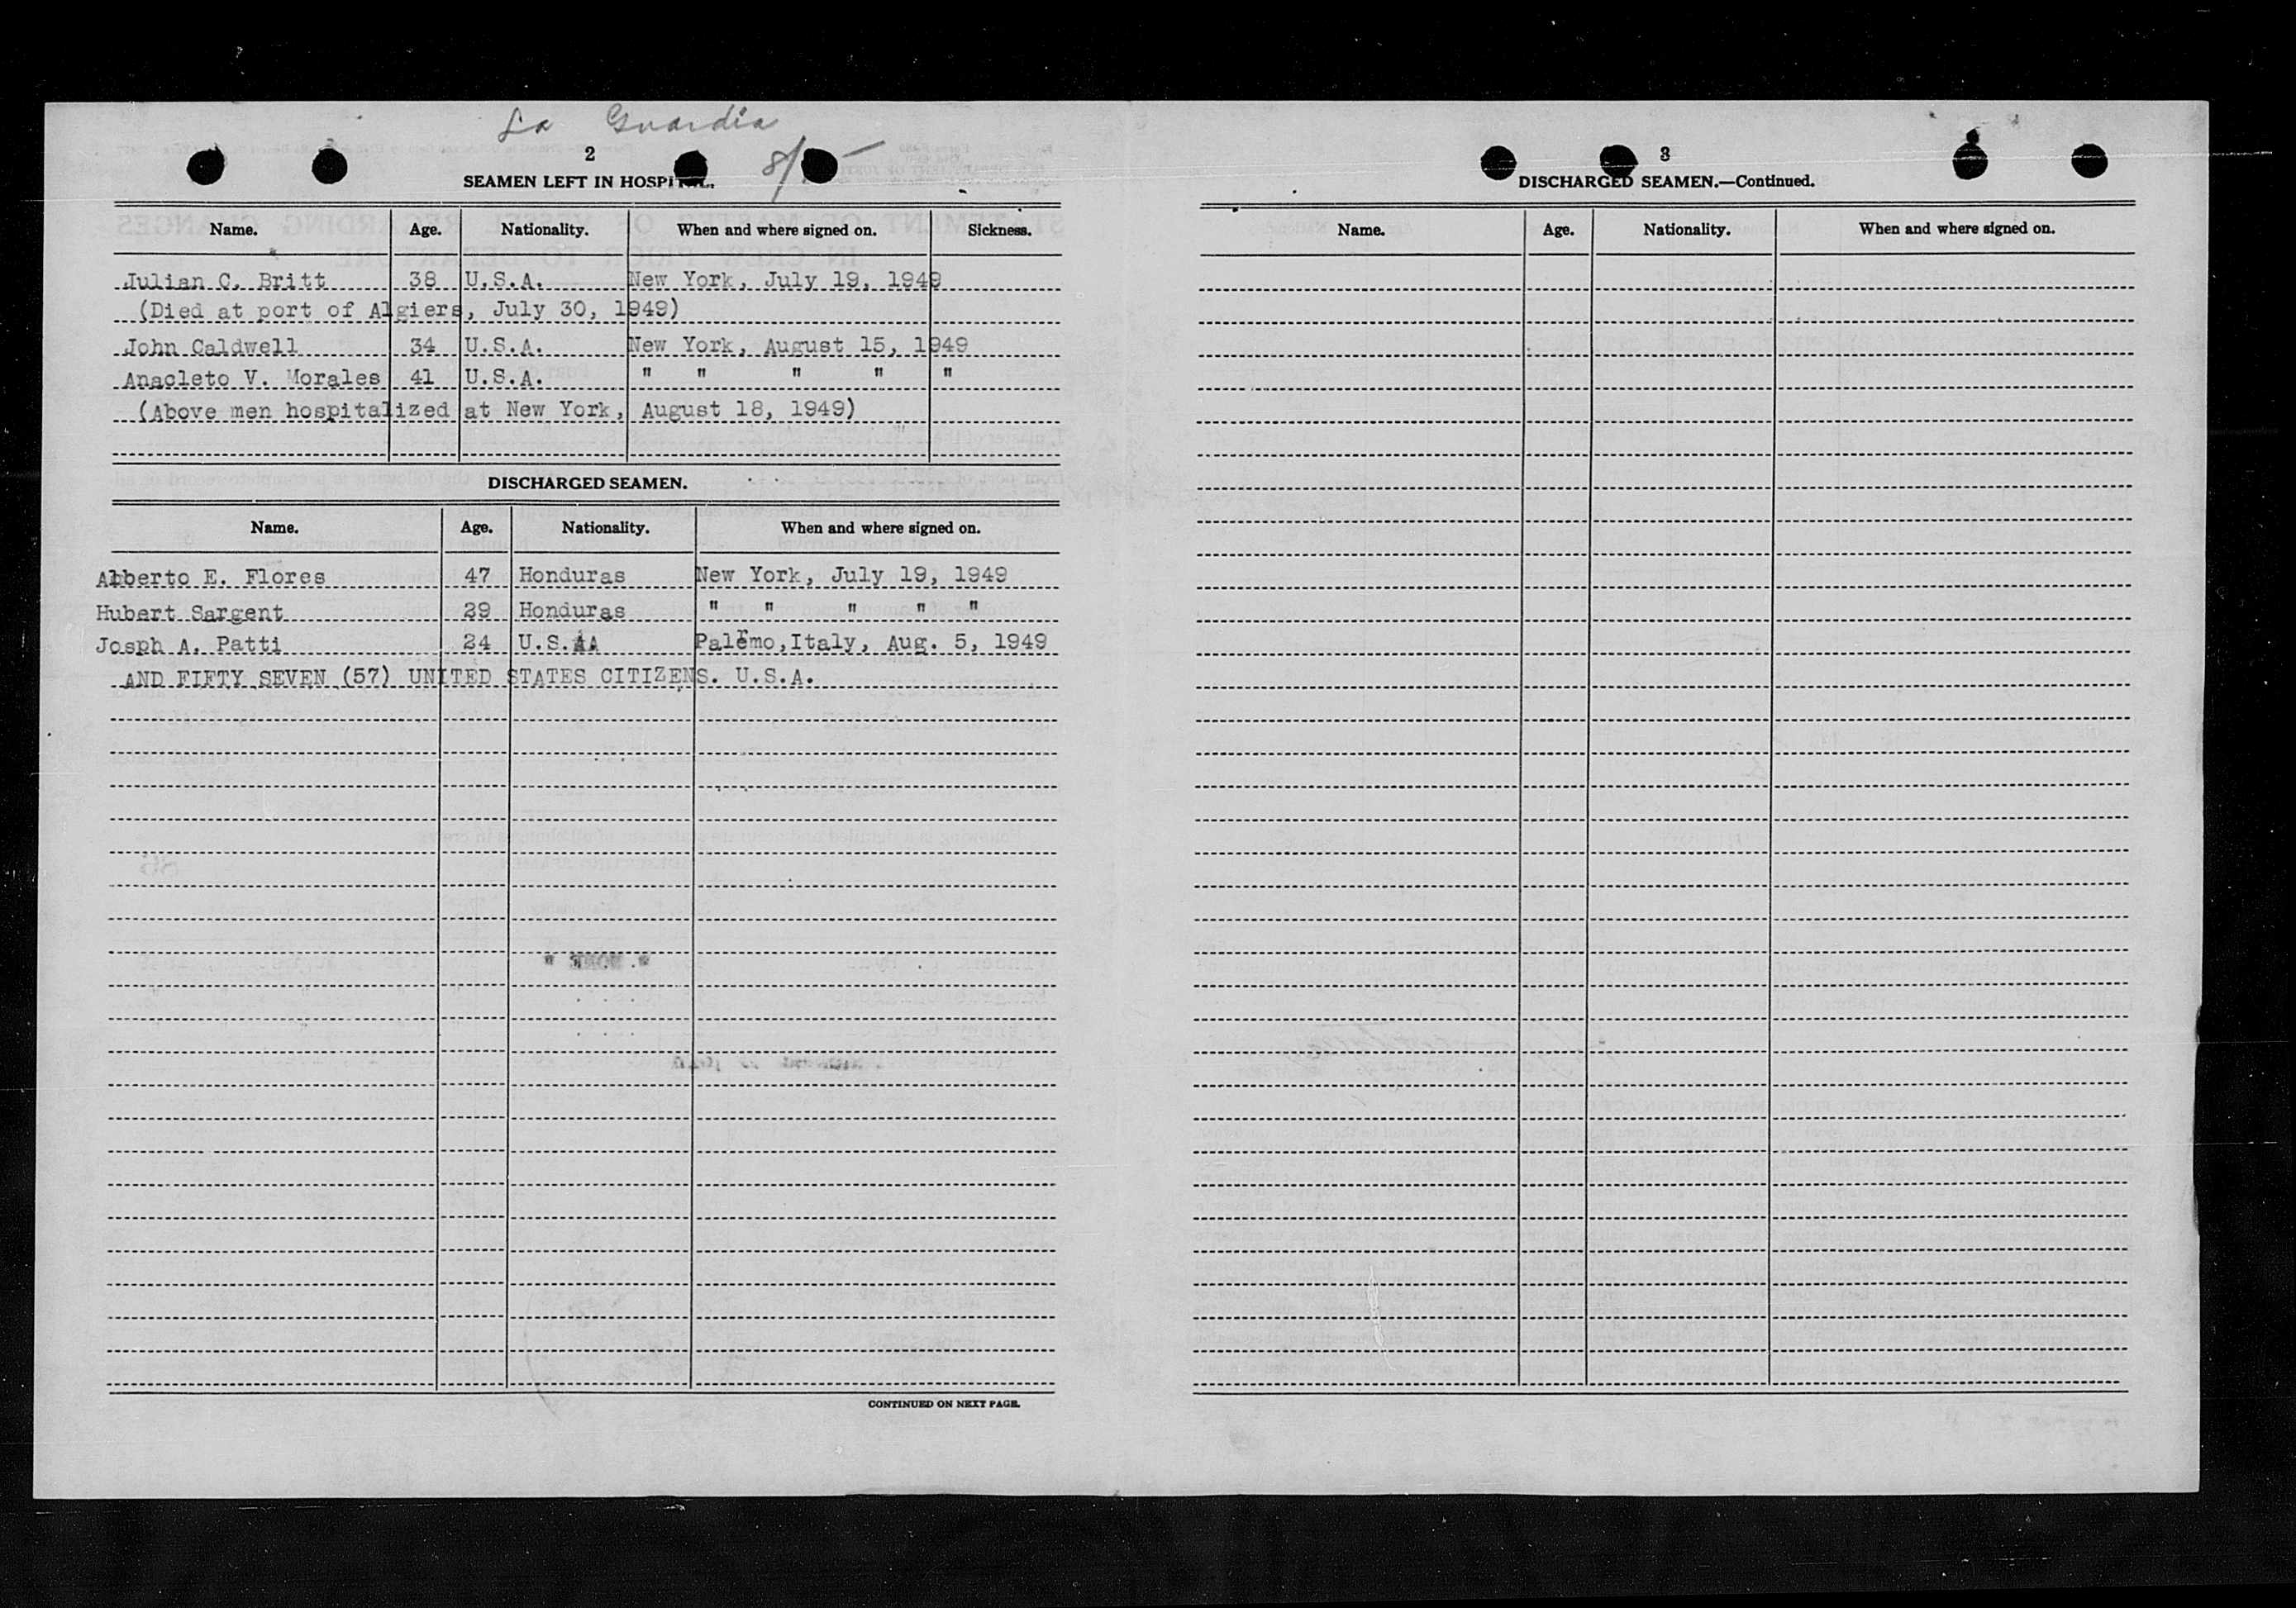 La Guardia
8/
2
SEAMEN LEFT IN HOSPITAL.
Name. Age. Nationality. When and where signed on. Sickness.
Julian C. Britt 38 U.S.A. New York, July 19, 1949
(Died at port of Algiers, July 30, 1949)
John Caldwell 34 U.S.A. New York, August 15, 1949
Anacleto V. Morales 41 U.S.A. " " " " "
(Above men hospitalized at New York, August 18, 1949)
DISCHARGED SEAMEN.
Name. Age. Nationality. When and where signed on.
Alberto E. Flores 47 Honduras New York, July 19, 1949
Hubert Sargent 29 Honduras " " " " "
Josph A. Patti 24 U.S.A Palermo,Italy, Aug. 5, 1949
AND FIFTY SEVEN (57) UNITED STATES CITIZENS. U.S.A.
CONTINUED ON NEXT PAGE.
3
DISCHARGED SEAMEN.—Continued.
Name. Age. Nationality. When and where signed on.